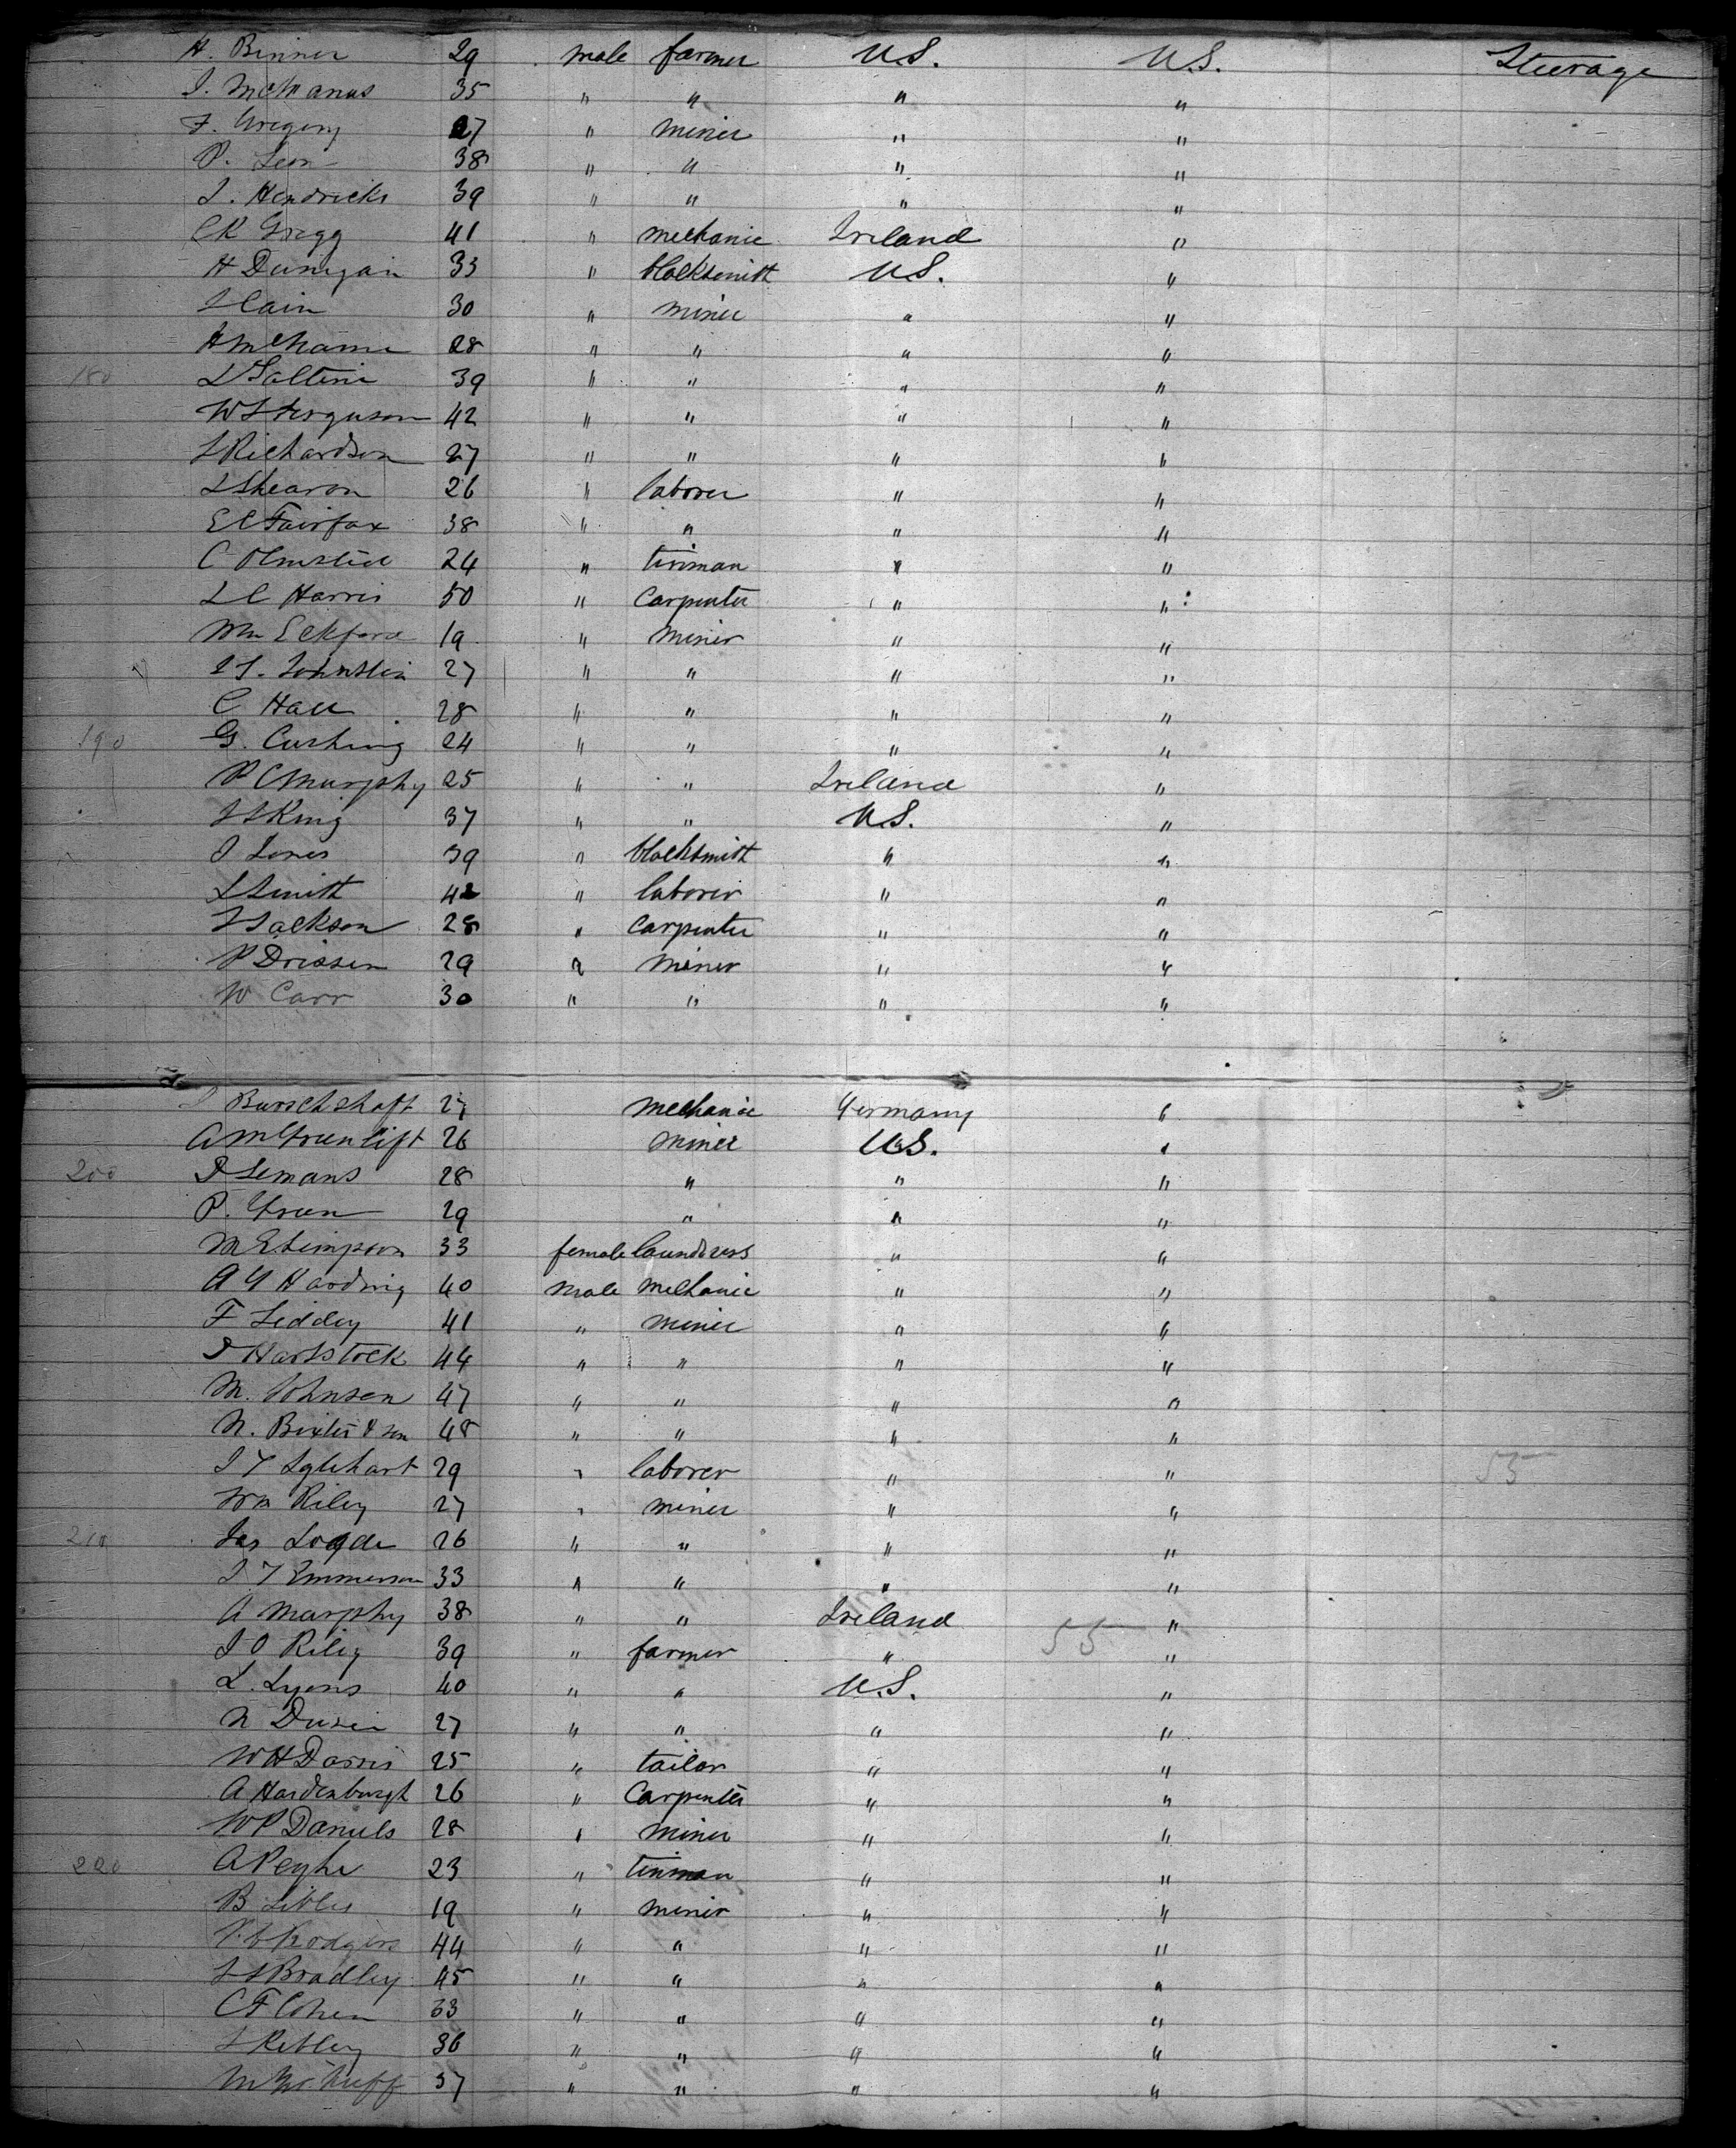 H. Binner 29 male farmer U.S. U.S. Steerage
J. McManus 35 " " " "
F. Gregory 27 " miner " "
P. Leon 38 " " " "
J. Hendricks 39 " " " "
C R Gregg 41 " mechanic Ireland "
H Dunigain 33 " blacksmith U.S. "
J Cain 30 " miner " "
28 " " " "
180 39 " " " "
W S Ferguson 42 " " " "
J Richardson 27 " " " "
J Shearon 26 " laborer " "
E C Fairfax 38 " " " "
C Olmsted 24 " tinman " "
L C Harris 50 " Carpenter " "
Wm Eckford 19 " miner " "
J T. Johnston 27 " " " "
C Hall 28 " " " "
190 G. Cushing 24 " " " "
P C Murphy 25 " " Ireland "
J S King 37 " " U.S. "
J Jones 39 " blacksmith " "
L Smith 42 " laborer " "
J Jackson 28 " Carpenter " "
P Drissen 29 " miner " "
W Carr 30 " " " "
J Burschshaft 27 mechanic Germany "
A M Greenlift 26 miner U.S. "
200 D Lemans 28 " " "
P. Green 29 " " "
M E Simpson 33 female laundress " "
A G Harding 40 male mechanic " "
F Liddey 41 " miner " "
J Hartstock 44 " " " "
M. Johnson 47 " " " "
N. Bixler & son 48 " " " "
J T Iglehart 29 " laborer " " 55
Wm Riley 27 " miner " "
210 Jas Logde 26 " " " "
J T Emmerson 33 " " " "
A Murphy 38 " " Ireland "
J O Riley 39 " farmer " 55 "
L. Lyons 40 " " U.S. "
N 27 " " " "
W H Darris 25 " tailor " "
A Hardenburgh 26 " Carpenter " "
W P Daniels 28 " miner " "
220 A 23 " tinman " "
B 19 " miner " "
Rodgers 44 " " " "
J S Bradley 45 " " " "
C F Cohen 33 " " " "
J 36 " " " "
37 " " " "